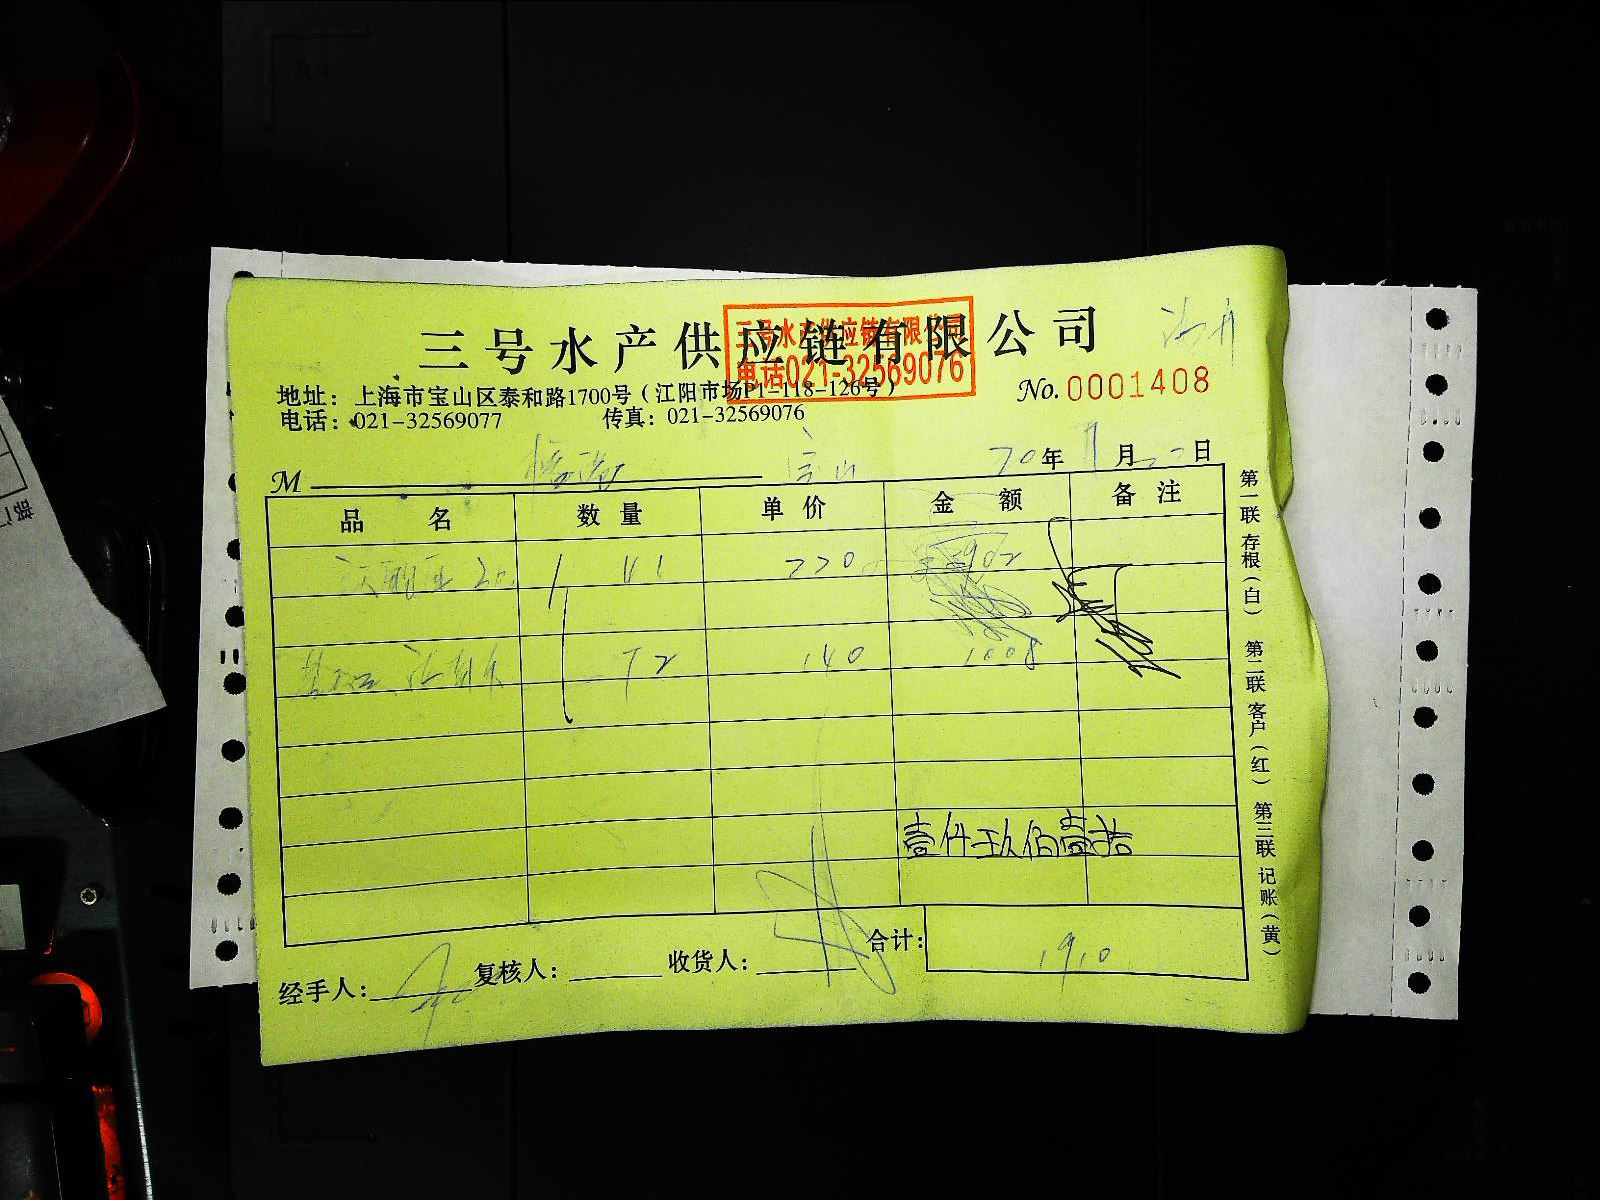 三号水产供应链有限公司
三号水产供应链有限公司
电话021-32569076
地址：上海市宝山区泰和路1700号（江阳市场P1-118-126号）
No. 0001408
电话：021-32569077 传真：021-32569076
M 宝山 20年11月22日
品名 数量 单价 金额 备注
41 220 902
72 140 1008
壹仟玖佰壹拾
合计： 1910
经手人： 复核人： 收货人：
第一联 存根（白） 第二联 客户（红） 第三联 记账（黄）